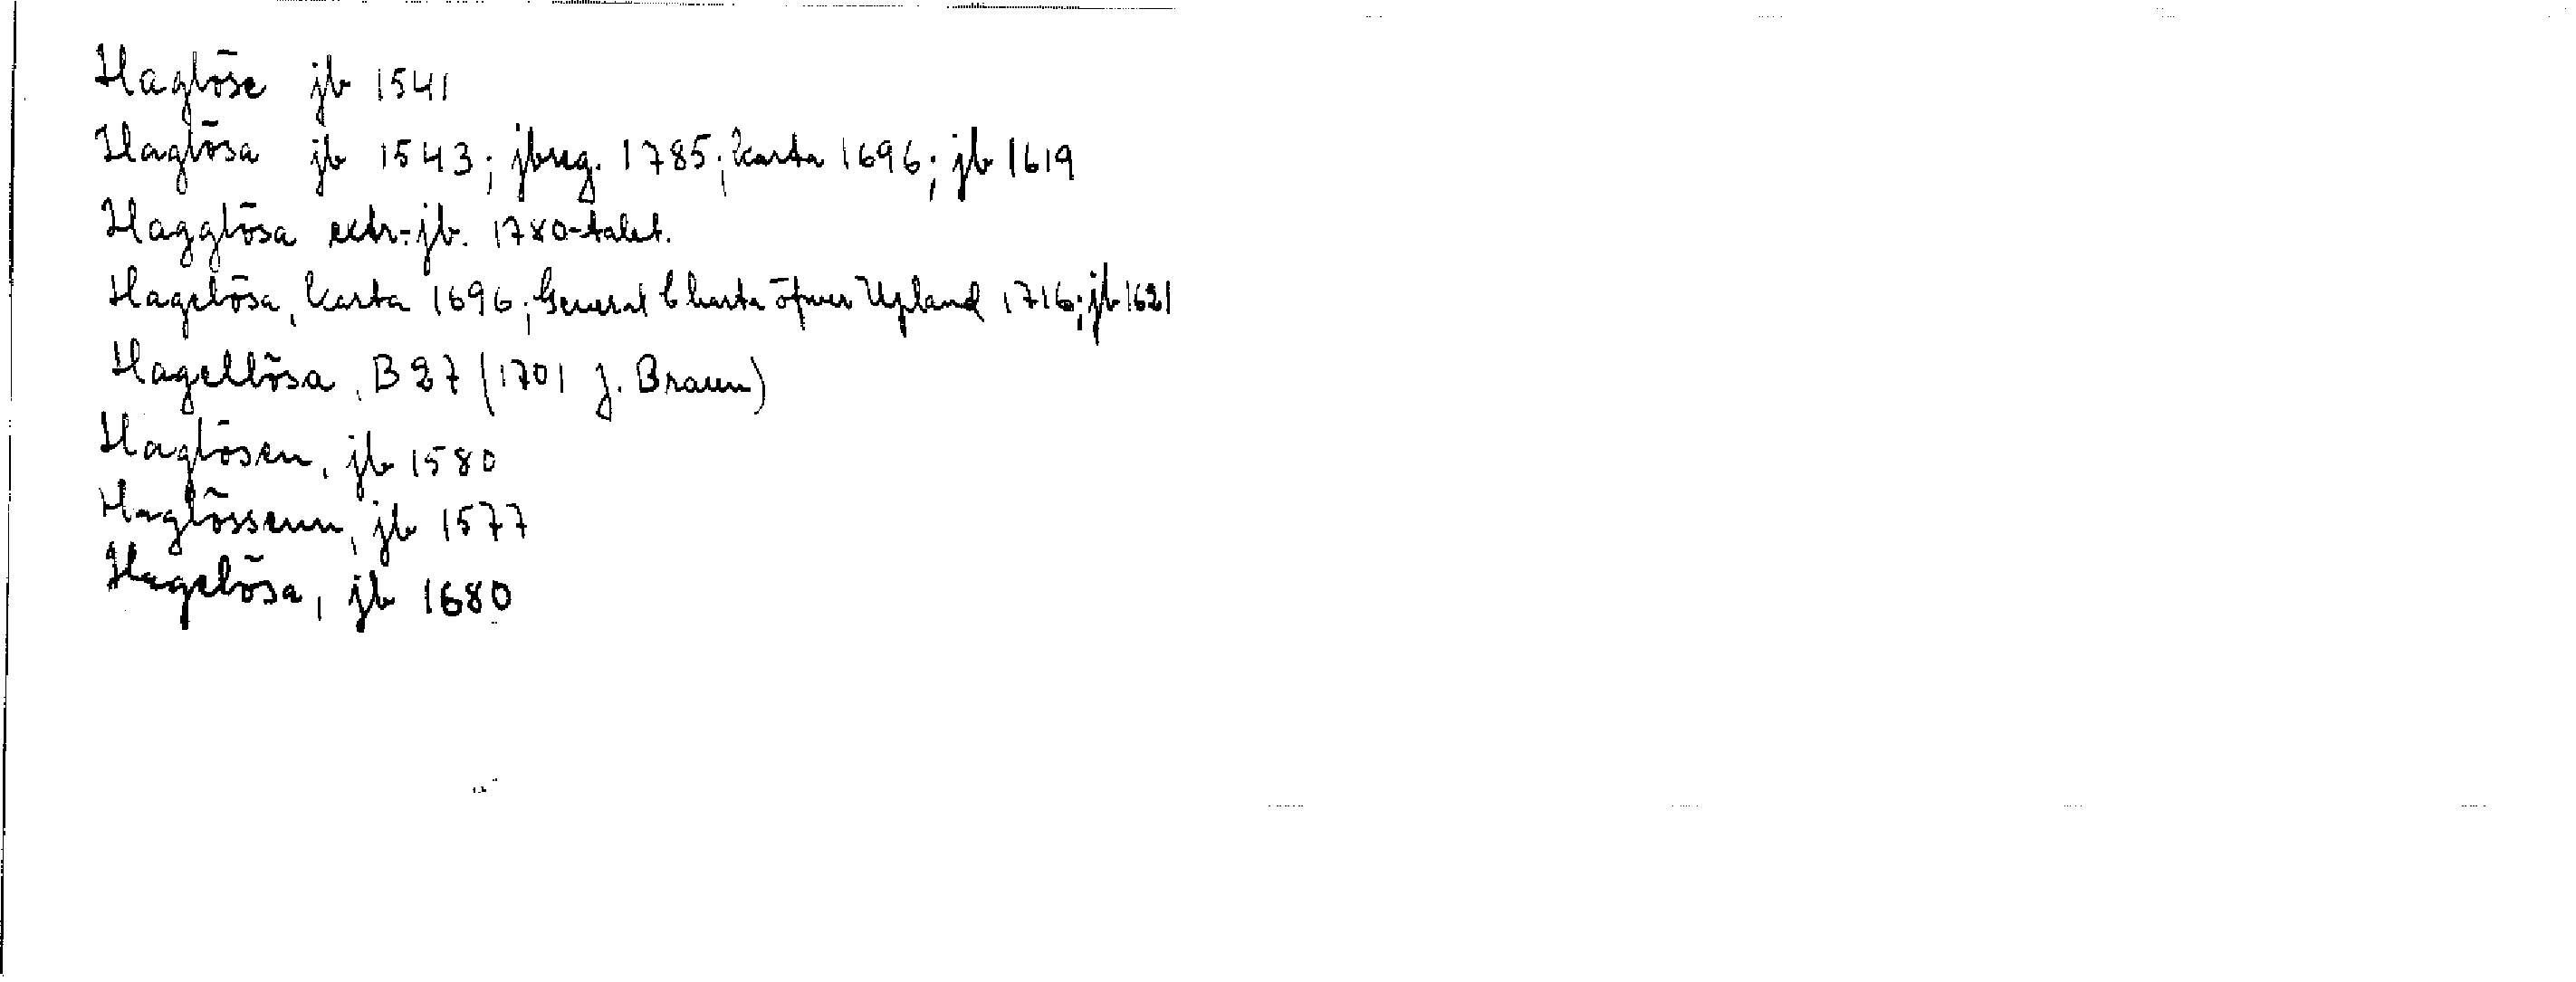 Haglöse jb 1541
Haglösa jb 1543; jbreg. 1785; karta 1696; jb 1619
Hagglösa extr.-jb. 1780-talet.
Hagelösa, karta 1696; General Charta öfwer Upland 1716; jb 1621
Hagellösa, B27 (1701 J. Braun)
Haglösen, jb 1580
Haglössenn, jb 1577
Hagelösa, jb 1680